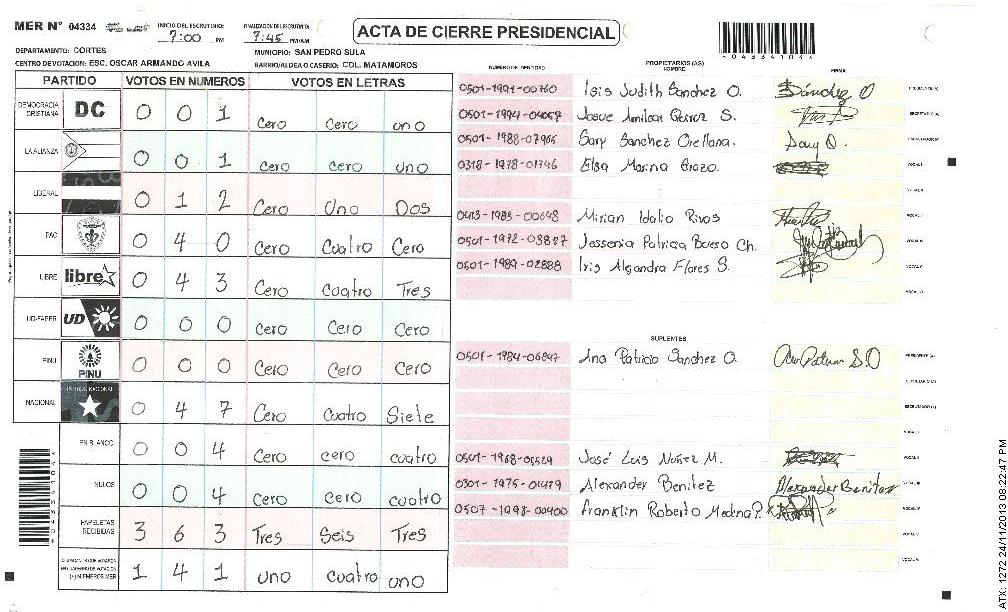 MER Nº 04334
INICIO DEL ESCRUTINIO: 7:00 PM
FINALIZACION DE ESCRUTINIO: 7:45 PM/AM
ACTA DE CIERRE PRESIDENCIAL
*04334104*
DEPARTAMENTO: CORTES
MUNICIPIO: SAN PEDRO SULA
CENTRO DE VOTACION: ESC. OSCAR ARMANDO AVILA
BARRIO/ALDEA O CASERIO: COL. MATAMOROS
PARTIDO VOTOS EN NUMEROS VOTOS EN LETRAS
DEMOCRACIA CRISTIANA DC 0 0 1 Cero Cero uno
LA ALIANZA 0 0 1 cero cero Uno
LIBERAL 0 1 2 Cero Uno Dos
PAC 0 4 0 Cero Cuatro Cero
LIBRE libre 0 4 3 Cero cuatro Tres
UD-FAPER UD 0 0 0 Cero Cero Cero
PINU PINU 0 0 0 Cero Cero Cero
NACIONAL PARTIDO NACIONAL 0 4 7 Cero Cuatro Siete
EN BLANCO 0 0 4 Cero cero cuatro
NULOS 0 0 4 cero cero cuatro
PAPELETAS RECIBIDAS 3 6 3 Tres Seis Tres
(+) MIEMBROS MER 1 4 1 uno cuatro uno
NUMERO DE IDENTIDAD PROPIETARIOS (AS) NOMBRE FIRMA
0501-1991-00760 Isis Judith Sanchez O. Sánchez O
Josue Amilcar S.
0501-1988-07965 Sary Sanchez Orellana. Sary O.
0318-1978-01746 Elsa Marina Erazo.
Mirian Idalia Rivas
Jessenia Patricia Bueso Ch.
0501-1989-02888 Iris Alejandra Flores S.
SUPLENTES
0501-1984-06847 Ana Patricia Sanchez O.
José Luis Nuñez M.
Alexander Benitez Alexander Benitez
0507-1998-00400 Franklin Roberto Medina P.
*04334104*
ATX: 1272 24/11/2013 08:22:47 PM